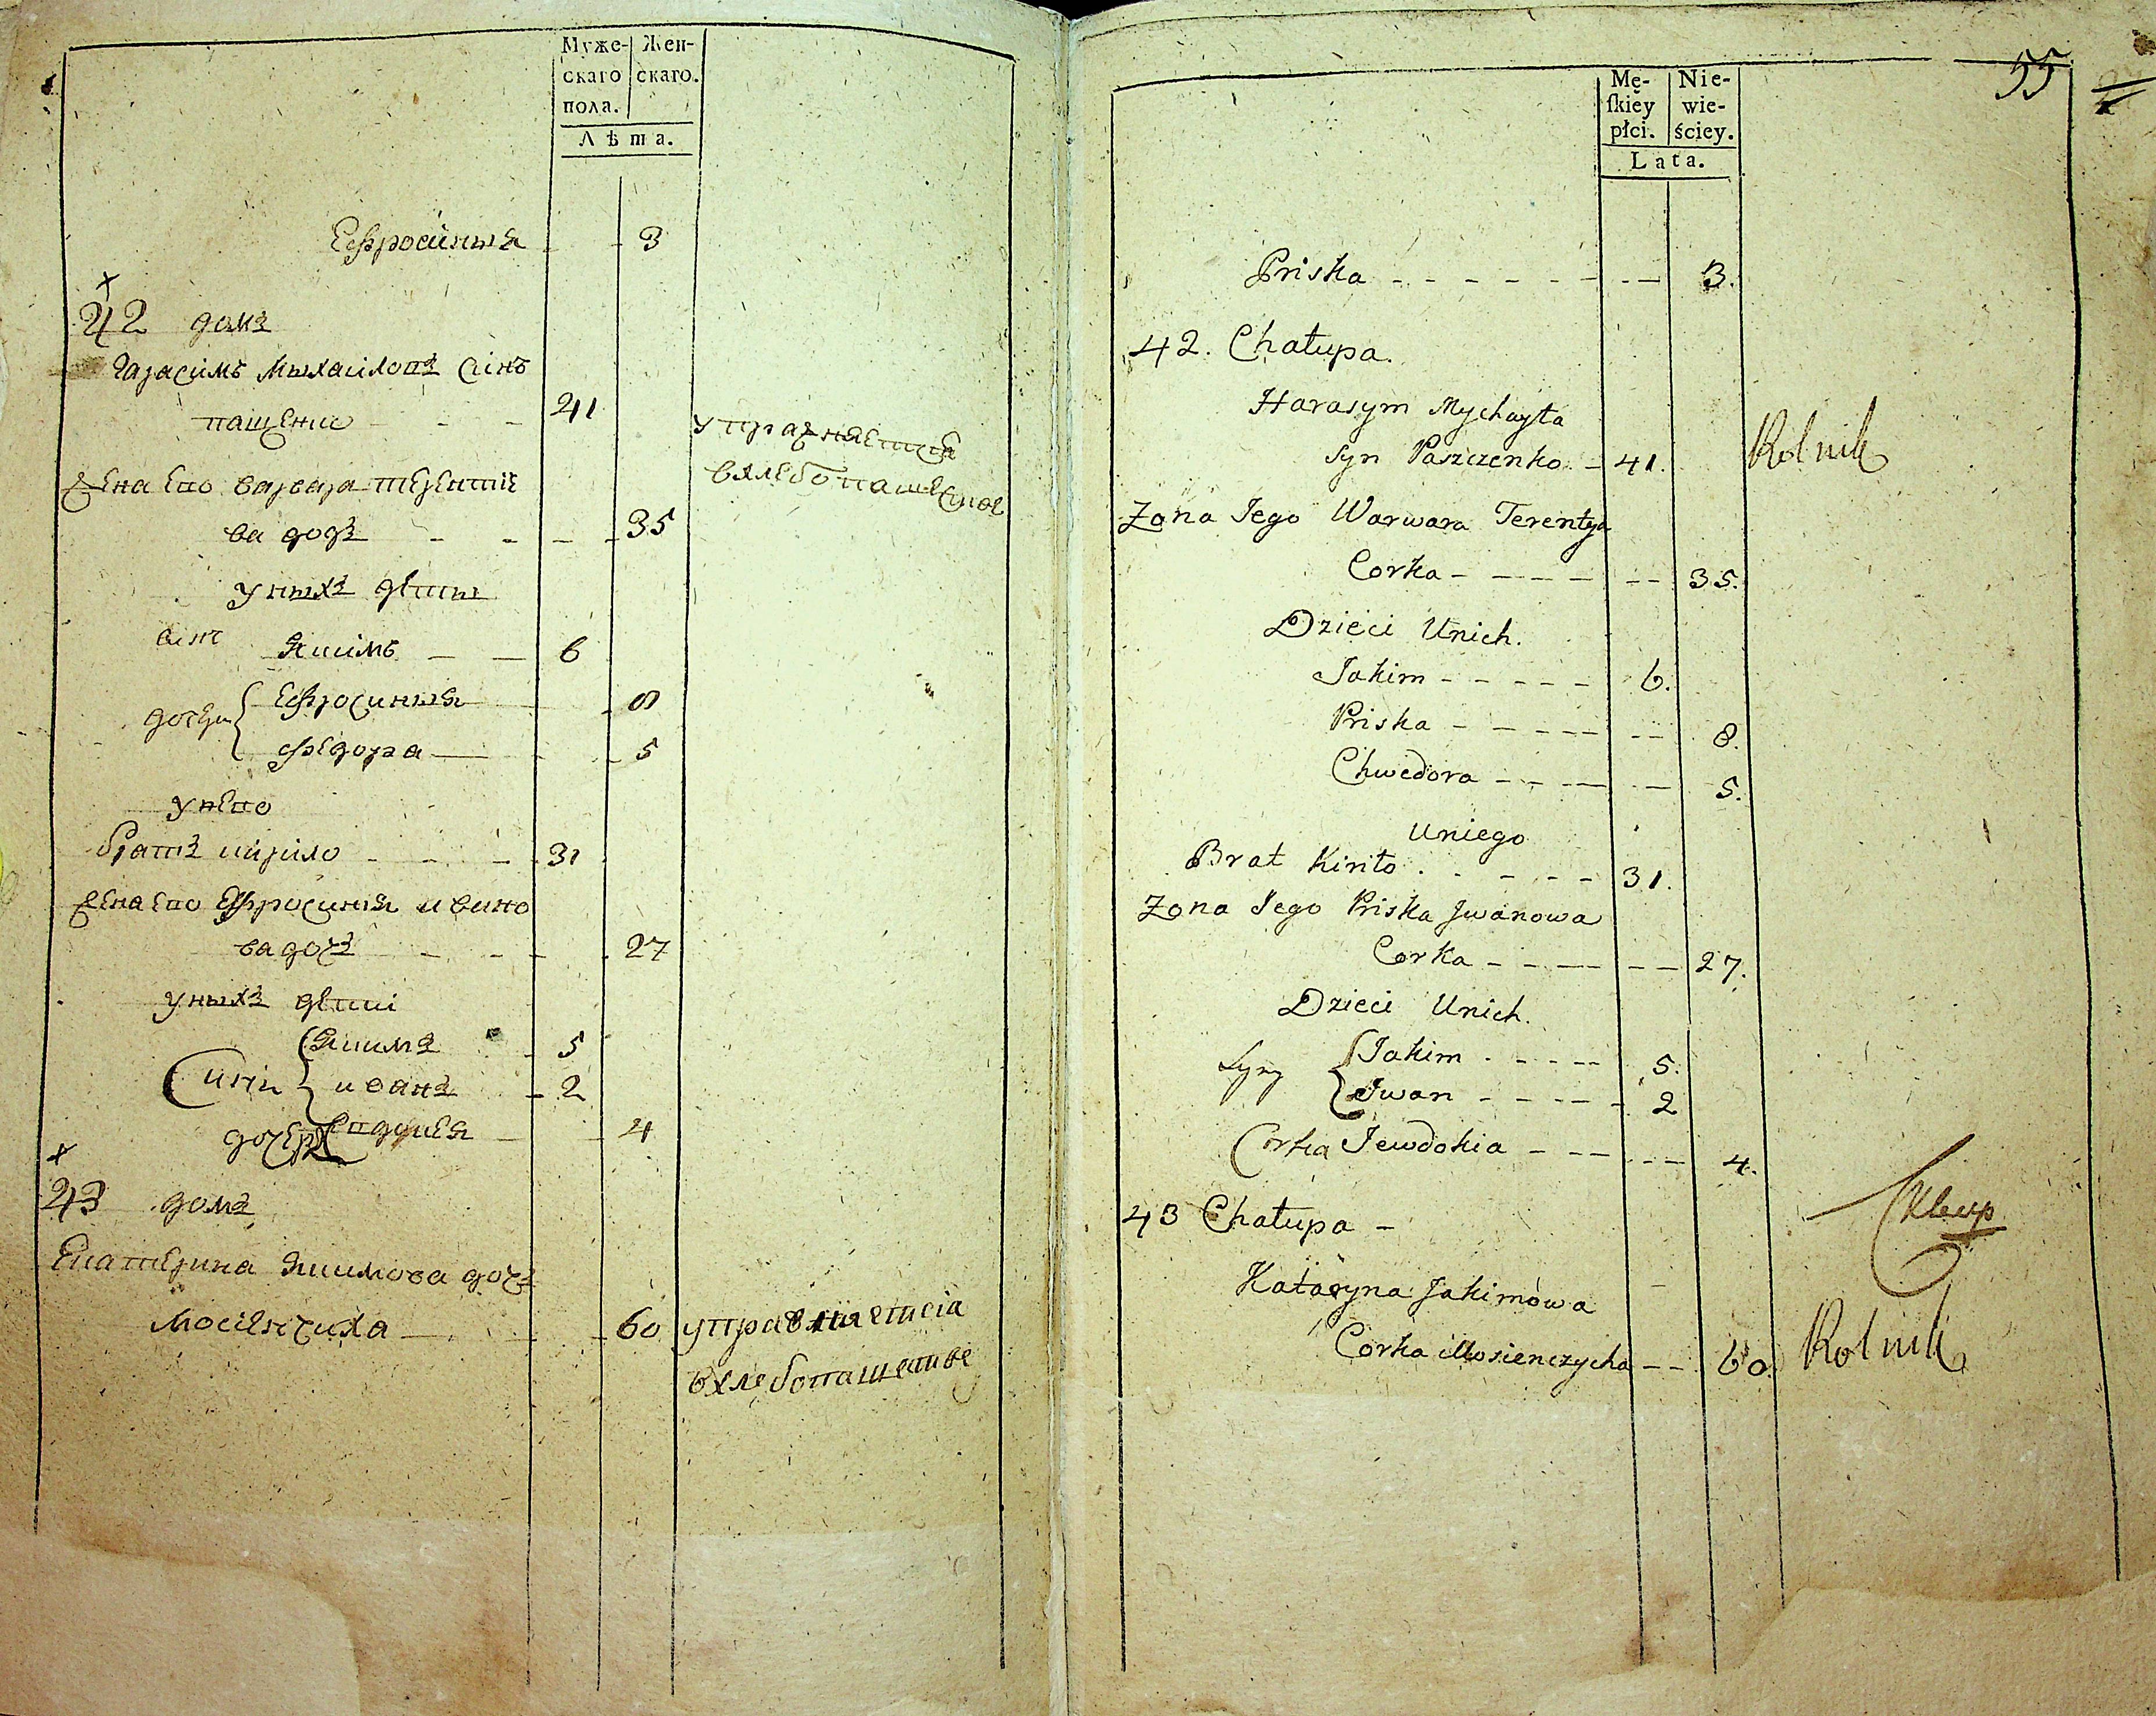 Муже- Жен-
скаго скаго.
пола.
Лѣта.
Ефросиния 3
42 домъ
Гарасимъ Михаиловъ синъ
пащенко 41
упражняется
в хлебопашестве
жена его варвара терентие
ва дочъ 35
у ныхъ дѣти
синъ Якимъ 6
дочери Ефросиния 8
Федора 5
у него
братъ кирило 31
жена его Ефросиния ивано
ва дочъ 27
у ныхъ дѣти
сини Якимъ 5
иванъ 2
дочеръ Евдокия 4
43 домъ
Екатерина Якимова дочъ
Мосіенчиха 60 управляется
в хлебопашестве
55
Mę- Nie-
ſkiey wie-
płci. ściey.
Lata.
Priska 3.
42. Chałupa.
Harasym Mychayła
Syn Paszczenko 41. Rolnik
Zona Jego Warwara Terentya
Corka 35.
Dzieci Unich.
Jakim 6.
Priska 8.
Chwedora 5.
Uniego
Brat Kiriło 31.
Zona Jego Priska Jwanowa
Corka 27.
Dzieci Unich.
Syny Jakim 5.
Jwan 2
Corka Jewdokia 4.
43 Chałupa
Katarzyna Jakimowa
Corka Mosienczycha 60. Rolnik